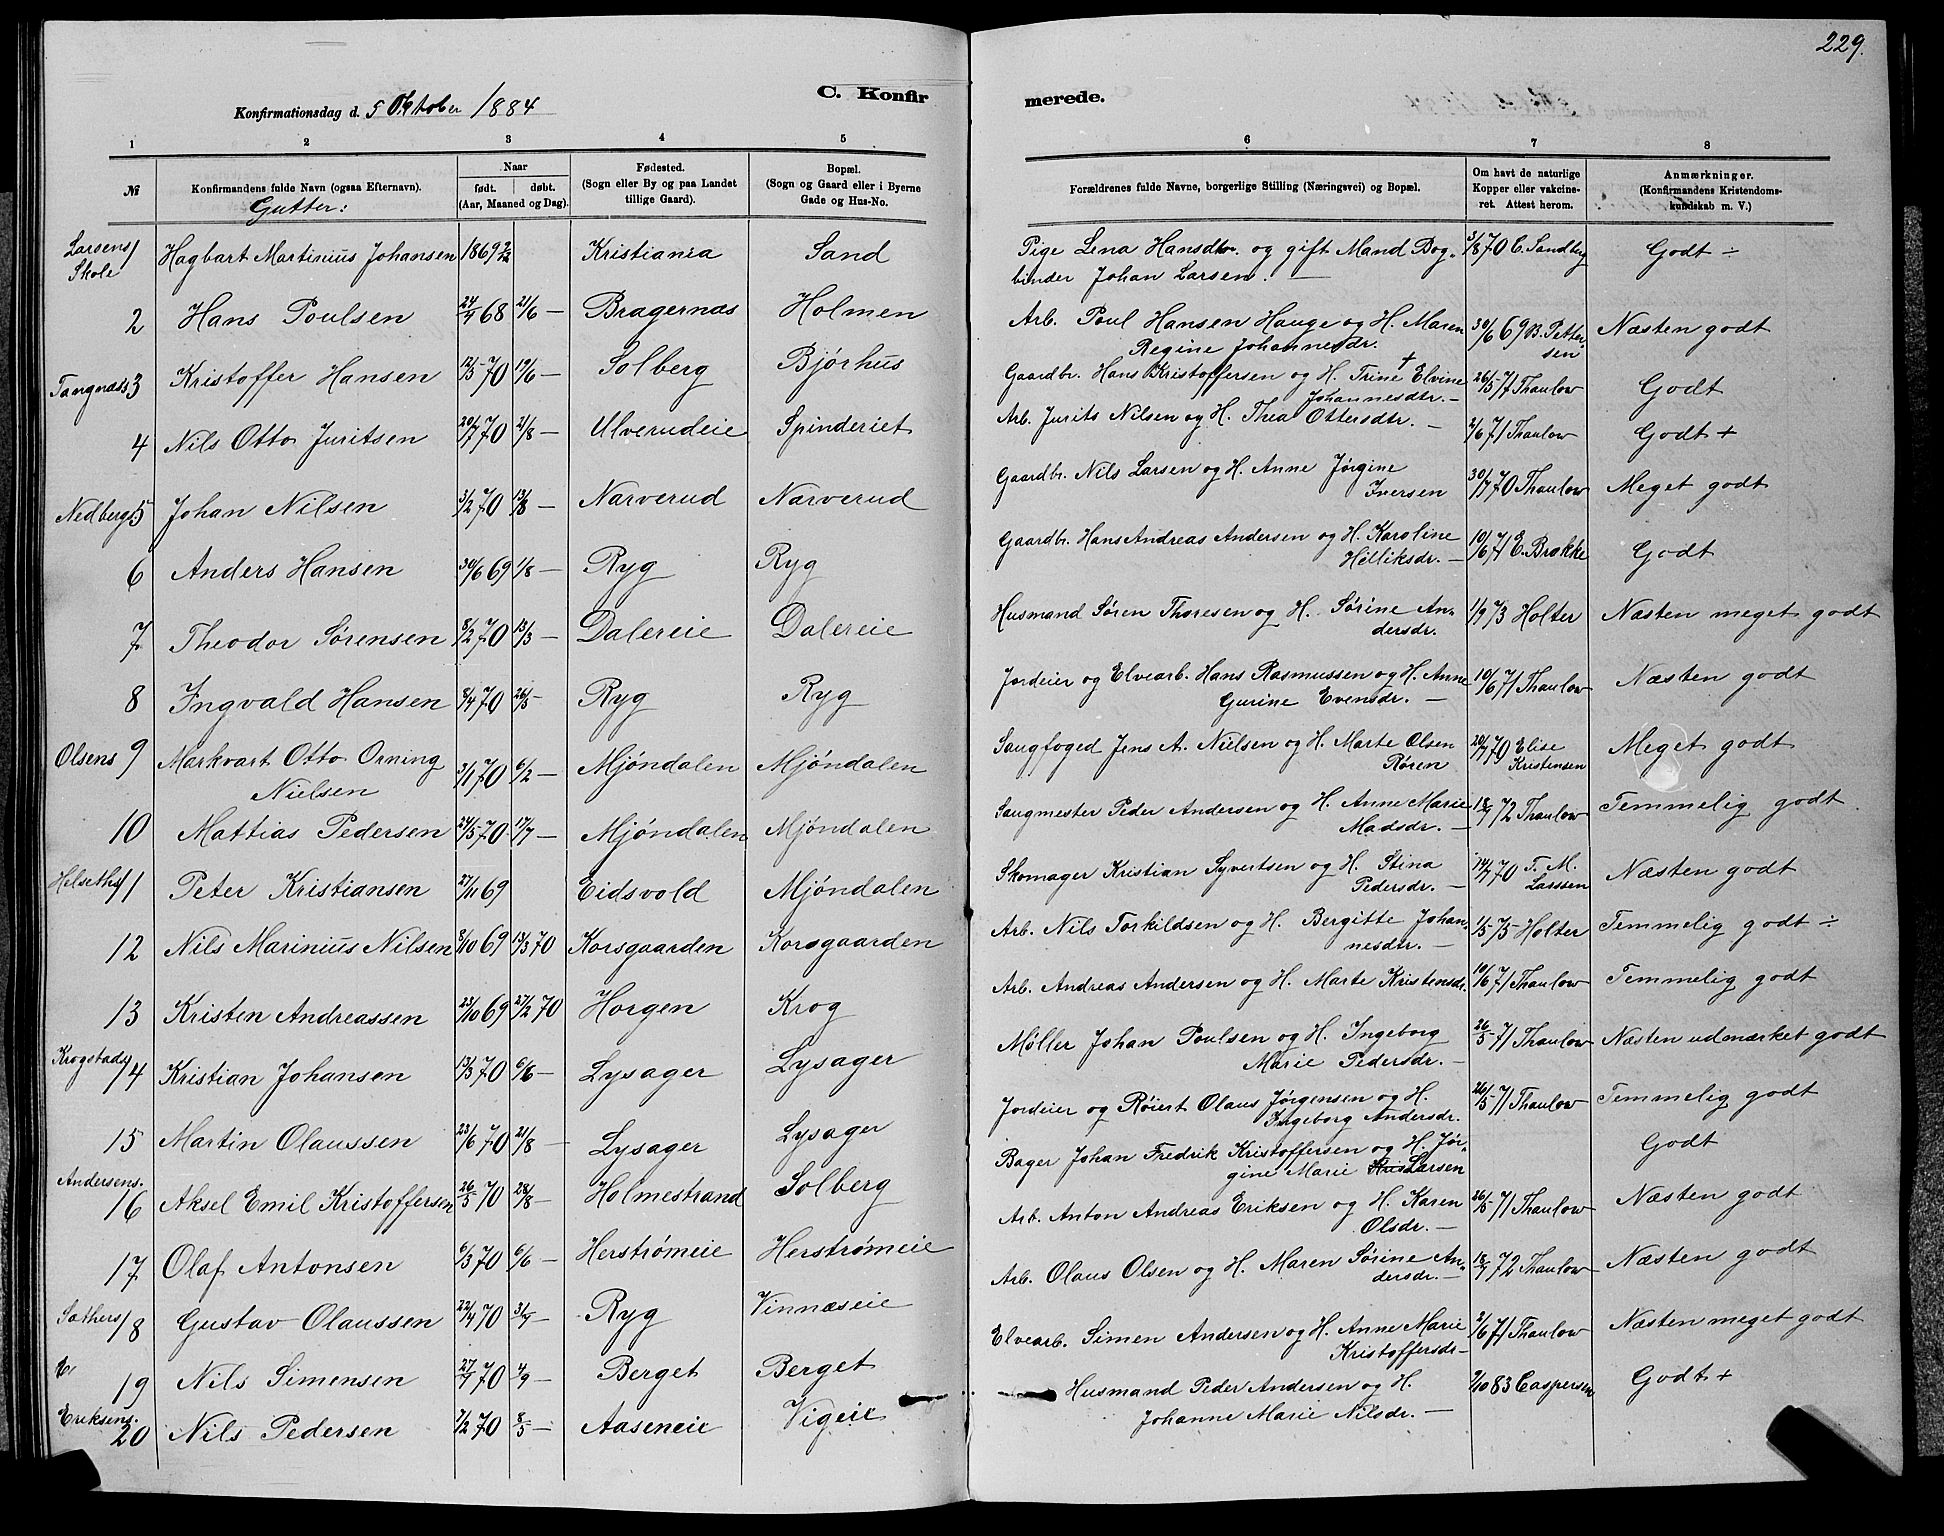 Konfirmationsdag d. 5 Oktober 1884
C. Konfir
1 2 3 4 5
№ Konfirmandens fulde Navn (ogsaa Efternavn). Naar født. døbt. (Aar, Maaned og Dag). Fødested. (Sogn eller By og paa Landet tillige Gaard). Bopæl. (Sogn og Gaard eller i Byerne Gade og Hus-No.
Gutter:
Larsens Skole 1 Hagbart Martinius Johansen 1869 Kristiania Sand
2 Hans Poulsen 68 21/6 — Bragernæs Holmen
Tangnæs 3 Kristoffer Hansen 12/5 70 19/6 — Solberg Bjórhus
4 Nils Otto Juritsen 20/7 70 21/8 — Ulverudeie Spinderiet
Nedberg 5 Johan Nilsen 3/2 70 13/8 — Narverud Narverud
6 Anders Hansen 30/6 69 1/8 — Ryg Ryg
7 Theodor Sørensen 8/2 70 13/3 — Dalereie Dalereie
8 Ingvald Hansen 8/4 70 26/5 — Ryg Ryg
Olsens 9 Markvart Otto Orning
Nielsen 3/1 70 6/2 — Mjóndalen Mjóndalen
10 Mattias Pedersen 24/5 70 17/7 — Mjóndalen Mjóndalen
Helseths 11 Peter Kristiansen 27/11 69 Eidsvold Mjóndalen
12 Nils Marinius Nilsen 8/10 69 13/3 70 Korsgaarden Korsgaarden
13 Kristen Andreassen 23/10 69 27/2 70 Horgen Krog
Krogstads 14 Kristian Johansen 13/3 70 6/6 — Lysager Lysager
15 Martin Olaussen 23/6 70 21/8 — Lysager Lysager
Andersens. 16 Aksel Emil Kristoffersen 26/5 70 28/8 — Holmestrand Solberg
17 Olaf Antonsen 6/3 70 6/6 — Herstrømeie Herstrømeie
Sathers 18 Gustav Olaussen 22/4 70 3/7 — Ryg Vinnæseie
19 Nils Simensen 27/7 70 4/9 — Berget Berget
Eriksens. 20 Nils Pedersen 7/2 70 8/5 — Aaseneie Vigeie
229.
merede.
6 7 8
Forældrenes fulde Navne, borgerlige Stilling (Næringsvei) og Bopæl. Om havt de naturlige Kopper eller vakcineret. Attest herom. Anmærkninger. (Konfirmandens Kristendomskundskab m. V.)
Pige Lena Hansdtr. og gift Mand Bog- 3/8 70 C. Sandberg Godt ÷
binder Johan Larsen. —
Arb. Poul Hansen Hauge og H. Maren 30/6 69 B. Petter- Næsten godt
Regine Johannesdr. sen
Gaardbr. Hans Kristoffersen og H. Trine † Elvine 26/5 71 Thaulow Godt
Johannesdtr. —
Arb. Jurits Nilsen og H. Thea Ottersdtr. — 2/6 71 Thaulow Godt +
Gaardbr. Nils Larsen og H. Anne Jørgine 30/7 70 Thaulow Meget godt
Iversen
Gaardbr. Hans Andreas Andersen og H. Karoline 10/6 71 E. Brække Godt
Helliksdr. —
Husmand Søren Thoresen og H. Sørine An- 1/9 73 Holter Næsten meget godt
dersdr.
Jordeier og Elvearb. Hans Rasmussen og H. Anne 10/6 71 Thaulow Næsten godt
Gurine Evensdr. —
Saugfoged Jens A. Nielsen og H. Marte Olsen 20/7 70 Elise Meget godt
Røren Kristensen
Saugmester Peder Andersen og H. Anne Marie 18/7 72 Thaulow Temmelig godt
Madsdr. —
Skomager Kristian Syvertsen og H. Stina 14/7 70 T. M. Næsten godt
Pedersdr. — Larssen
Arb. Nils Torkildsen og H. Bergitte Johan- 1/5 75 Holter Temmelig godt ÷
nesdtr. —
Arb. Andreas Andersen og H. Marte Kristensdr. 10/6 71 Thaulow Temmelig godt
Møller Johan Poulsen og H. Ingeborg 26/5 71 Thaulow Næsten udmærket godt
Marie Pedersdr. —
Jordeier og Røiert Olaus Jørgensen og H. 26/5 71 Thaulow Temmelig godt
Ingeborg Andersdr.
Bager Johan Fredrik Kristoffersen og H. Jør- Godt
gine Marie Larsen
Arb. Anton Andreas Eriksen og H. Karen 26/5 71 Thaulow Næsten godt
Olsdr. —
Arb. Olaus Olsen og H. Maren Sørine An- 18/7 72 Thaulow Næsten godt
dersdr. —
Elvearb. Simen Andersen og H. Anne Marie 2/6 71 Thaulow Næsten meget godt
Kristoffersdr —
Husmand Peder Andersen og H. 83 Caspersen Godt +
Johanne Marie Nilsdr. —